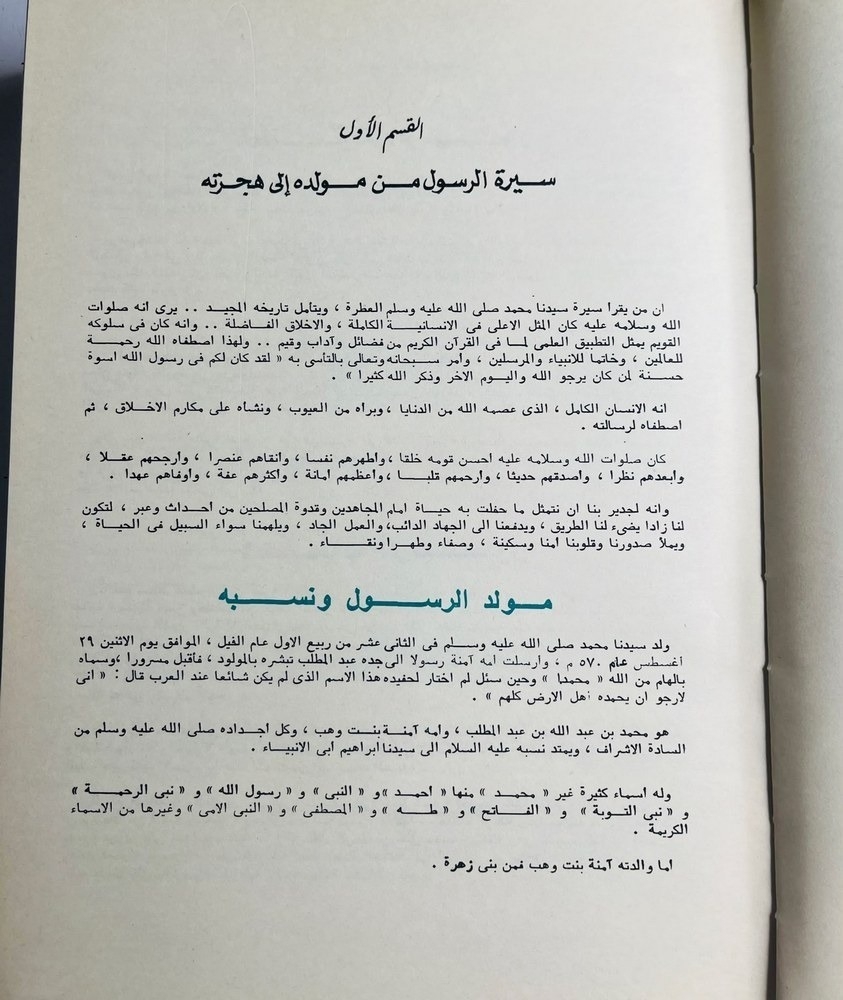 القسم الأول
سيرة الرسول من مولده إلى هجرته
ان من يقرا سيرة سيدنا محمد صلى الله عليه وسلم العطرة ، ويتأمل تاريخه المجيد .. يرى انه صلوات
الله وسلامه عليه كان المثل الاعلى فى الانسانية الكاملة ، والاخلاق الفاضلة .. وانه كان فى سلوكه
القويم يمثل التطبيق العلمى لما فى القرآن الكريم من فضائل وآداب وقيم .. ولهذا اصطفاه الله رحمة
للعالمين ، وخاتما للانبياء والمرسلين ، وأمر سبحانه وتعالى بالتأسى به « لقد كان لكم فى رسول الله اسوة
حسنة لمن كان يرجو الله واليوم الاخر وذكر الله كثيرا » .
انه الانسان الكامل ، الذى عصمه الله من الدنايا ، وبراه من العيوب ، ونشاه على مكارم الاخلاق ، ثم
اصطفاه لرسالته .
كان صلوات الله وسلامه عليه احسن قومه خلقا ، واطهرهم نفسا ، وانقاهم عنصرا ، وارجحهم عقلا ،
وابعدهم نظرا ، واصدقهم حديثا ، وارحمهم قلبا ، واعظمهم امانة ، واكثرهم عفة ، واوفاهم عهدا .
وانه لجدير بنا ان نتمثل ما حفلت به حياة امام المجاهدين وقدوة المصلحين من احداث وعبر ، لتكون
لنا زادا يضىء لنا الطريق ، ويدفعنا الى الجهاد الدائب ، والعمل الجاد ، ويلهمنا سواء السبيل فى الحياة ،
ويملأ صدورنا وقلوبنا امنا وسكينة ، وصفاء وطهرا ونقاء .
مولد الرسول ونسبه
ولد سيدنا محمد صلى الله عليه وسلم فى الثانى عشر من ربيع الاول عام الفيل ، الموافق يوم الاثنين ٢٩
أغسطس عام ٥٧٠ م ، وأرسلت امه آمنة رسولا الى جده عبد المطلب تبشره بالمولود ، فأقبل مسرورا ، وسماه
بالهام من الله « محمدا » وحين سئل لم اختار لحفيده هذا الاسم الذى لم يكن شائعا عند العرب قال : « انى
لارجو ان يحمده أهل الارض كلهم » .
هو محمد بن عبد الله بن عبد المطلب ، وامه آمنة بنت وهب ، وكل اجداده صلى الله عليه وسلم من
السادة الاشراف ، ويمتد نسبه عليه السلام الى سيدنا ابراهيم ابى الانبياء .
وله اسماء كثيرة غير « محمد » منها « احمد » و « النبى » و « رسول الله » و « نبى الرحمة »
و « نبى التوبة » و « الفاتح » و « طه » و « المصطفى » و « النبى الامى » وغيرها من الاسماء
الكريمة .
اما والدته آمنة بنت وهب فمن بنى زهرة .